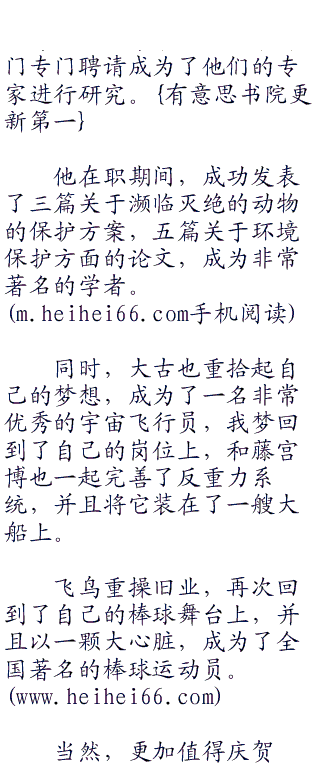 门专门聘请成为了他们的专
家进行研究。{有意思书院更
新第一}
他在职期间，成功发表
了三篇关于濒临灭绝的动物
的保护方案，五篇关于环境
保护方面的论文，成为非常
著名的学者。
(m.heihei66.com手机阅读)
同时，大古也重拾起自
己的梦想，成为了一名非常
优秀的宇宙飞行员，我梦回
到了自己的岗位上，和藤宫
博也一起完善了反重力系
统，并且将它装在了一艘大
船上。
飞鸟重操旧业，再次回
到了自己的棒球舞台上，并
且以一颗大心脏，成为了全
国著名的棒球运动员。
(www.heihei66.com)
当然，更加值得庆贺